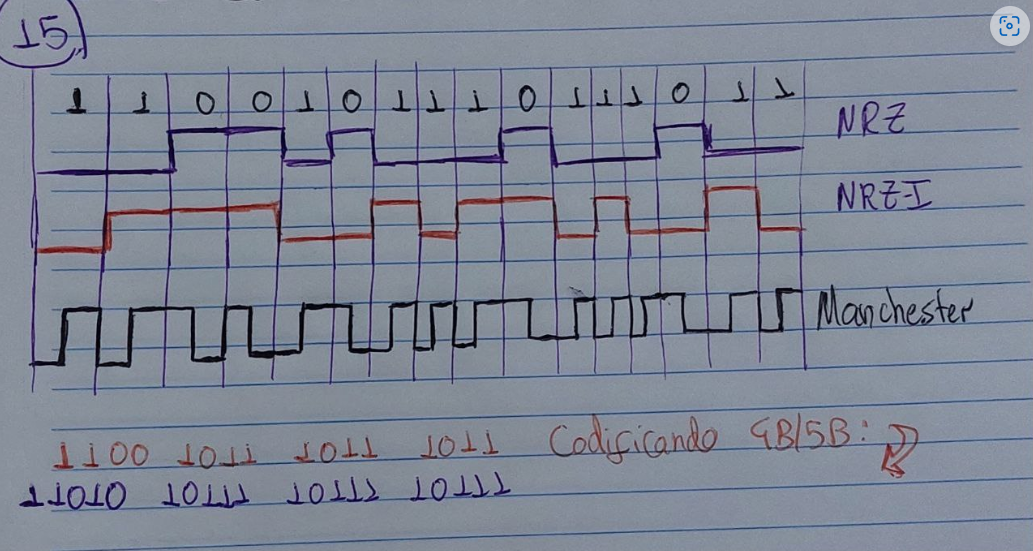 15)
1 1 0 0 1 0 1 1 1 0 1 1 1 0 1 1
NRZ
NRZ-I
Manchester
1100 1011 1011 1011 Codificando 4B/5B:
11010 10111 10111 10111